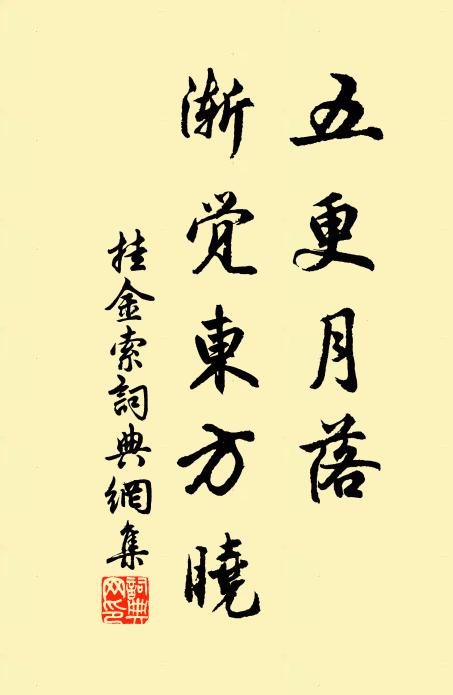 五更月落
渐觉東方曉
挂金索詞典網集
詞典
网印